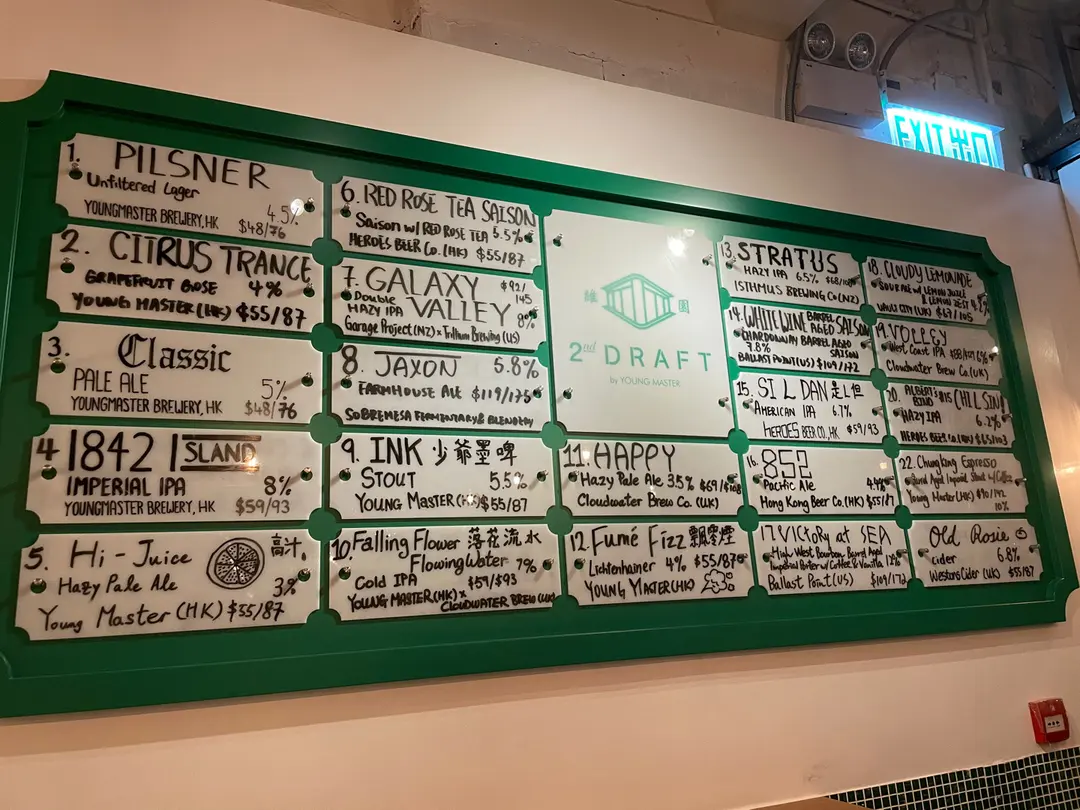 1. PILSNER
Unfiltered Lager 4.5%
YOUNGMASTER BREWERY, HK $48/76
2. CITRUS TRANCE
GRAPEFRUIT GOSE 4%
YOUNG MASTER (HK) $55/87
3. Classic
PALE ALE 5%
YOUNGMASTER BREWERY, HK $48/76
4 1842 ISLAND
IMPERIAL IPA 8%
YOUNGMASTER BREWERY, HK $59/93
5. Hi-Juice 高汁
Hazy Pale Ale 3%
Young Master (HK) $55/87
6. RED ROSE TEA SAISON
Saison w/ RED ROSE TEA 5.5%
HEROES BEER Co. (HK) $55/87
7. GALAXY $92/145
Double HAZY IPA VALLEY 8%
Garage Project (NZ) x Trillium Brewing (US)
8. JAXON 5.8%
FARMHOUSE ALE $119/175
SOBREMESA FERMENTARY & BLENDERY
9. INK 少爺墨啤
STOUT 5.5%
Young Master (HK) $55/87
10. Falling Flower 落花流水
Flowing Water 7%
Cold IPA $59/93
YOUNG MASTER (HK) x CLOUDWATER BREW (UK)
雒 園
2nd DRAFT
by YOUNG MASTER
11. HAPPY
Hazy Pale Ale 3.5% $69/$108
Cloudwater Brew Co. (UK)
12. Fumé Fizz 飄零煙
Lichtenhainer 4% $55/87
YOUNG MASTER (HK)
13. STRATUS
HAZY IPA 6.5% $68/
ISTHMUS BREWING Co (NZ)
14. WHITE WINE BARREL AGED SAISON
CHARDONNAY BARREL AGED
7.8% SAISON
BALLAST POINT (US) $109/172
15. SI L DAN 是但
AMERICAN IPA 6.7%
HEROES BEER CO., HK $59/93
16. 852
Pacific Ale
Hong Kong Beer Co. (HK) $55/87
17 VICTORY at SEA
High West Bourbon Barrel Aged
Imperial Porter w/ Coffee & Vanilla 12%
Ballast Point (US) $109/172
18. CLOUDY LEMONADE
SOUR ALE w/ LEMON JUICE
& LEMON ZEST
VAULT CITY (UK) $67/105
19. VOLLEY
West Coast IPA
Cloudwater Brew Co. (UK)
20. ALBERT'S
HAZY IPA 6.2%
HEROES BEER Co. (HK) $65/103
22. Chungking Espresso
Barrel Aged Imperial Stout w/ Coffee
Young Master (HK) $90/142
10%
Old Rosie
cider 6.8%
Westons Cider (UK) $55/87
EXIT 出口